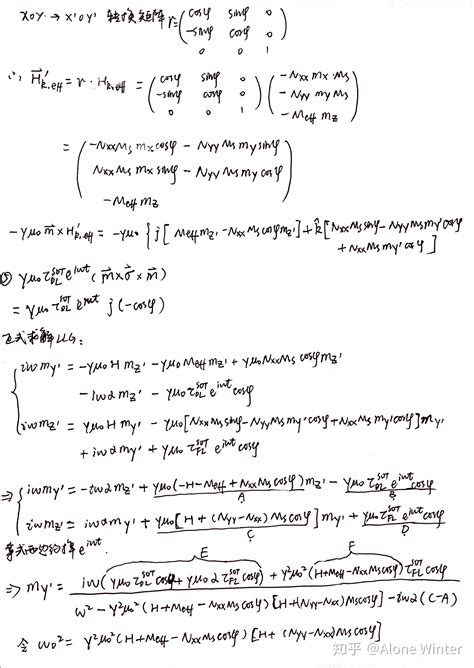 XOY → X'OY' 转换矩阵 r = ( cosφ sinφ 0
-sinφ cosφ 0
0 0 1 )
∴ H⃗'k,eff = r · Hk,eff = ( cosφ sinφ 0 ; -sinφ cosφ 0 ; 0 0 1 ) ( -Nxx mx Ms ; -Nyy my Ms ; -Meff mz )
= ( -NxxMs mx cosφ - Nyy Ms my sinφ
Nxx Ms mx sinφ - Nyy Ms my cosφ
-Meff mz )
-γμ0 m⃗×H'k,eff = -γμ0 { j[ Meff mz' - Nxx Ms cosφ mz' ] + k̂ [ NxxMs sinφ - NyyMs my' cosφ
+ Nxx Ms my' cosφ ]
γμ0 τDL^SOT e^iωt ( m⃗×σ⃗×m⃗ )
= γμ0 τDL^SOT e^iωt j (-cosφ)
正式求解 LLG:
iω my' = -γμ0 H mz' - γμ0 Meff mz' + γμ0 NxxMs cosφ mz'
- iωα mz' - γμ0 τDL^SOT e^iωt cosφ
iω mz' = γμ0 H my' - γμ0 [ NxxMs sinφ - NyyMs my' cosφ + NxxMs my' cosφ ] my'
+ iωα my' + γμ0 τFL^SOT e^iωt cosφ
⇒ { iω my' = -iωα mz' + γμ0 (-H - Meff + NxxMs cosφ) mz' - γμ0 τDL^SOT e^iωt cosφ
A B
iω mz' = iωα my' + γμ0 [ H + (Nyy - Nxx) Ms cosφ ] my' + γμ0 τFL^SOT e^iωt cosφ
C D
等式两边约掉 e^iωt.
E F
⇒ my' = iω ( γμ0 τDL^SOT cosφ + γμ0 α τFL^SOT cosφ ) + γ²μ0² (H + Meff - NxxMs cosφ) τFL^SOT cosφ
ω² - γ²μ0² (H + Meff - NxxMs cosφ) [ H + (Nyy - Nxx) Ms cosφ ] - iωα (C - A)
令 ω0² = γ²μ0² (H + Meff - NxxMs cosφ) [ H + (Nyy - Nxx) Ms cosφ ]
知乎 @Alone Winter